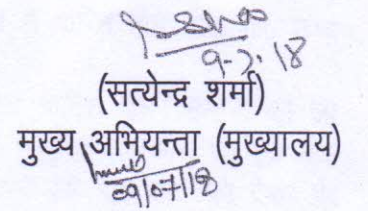 9-7-18
(सत्येन्द्र शर्मा)
मुख्य अभियन्ता (मुख्यालय)
09/07/18